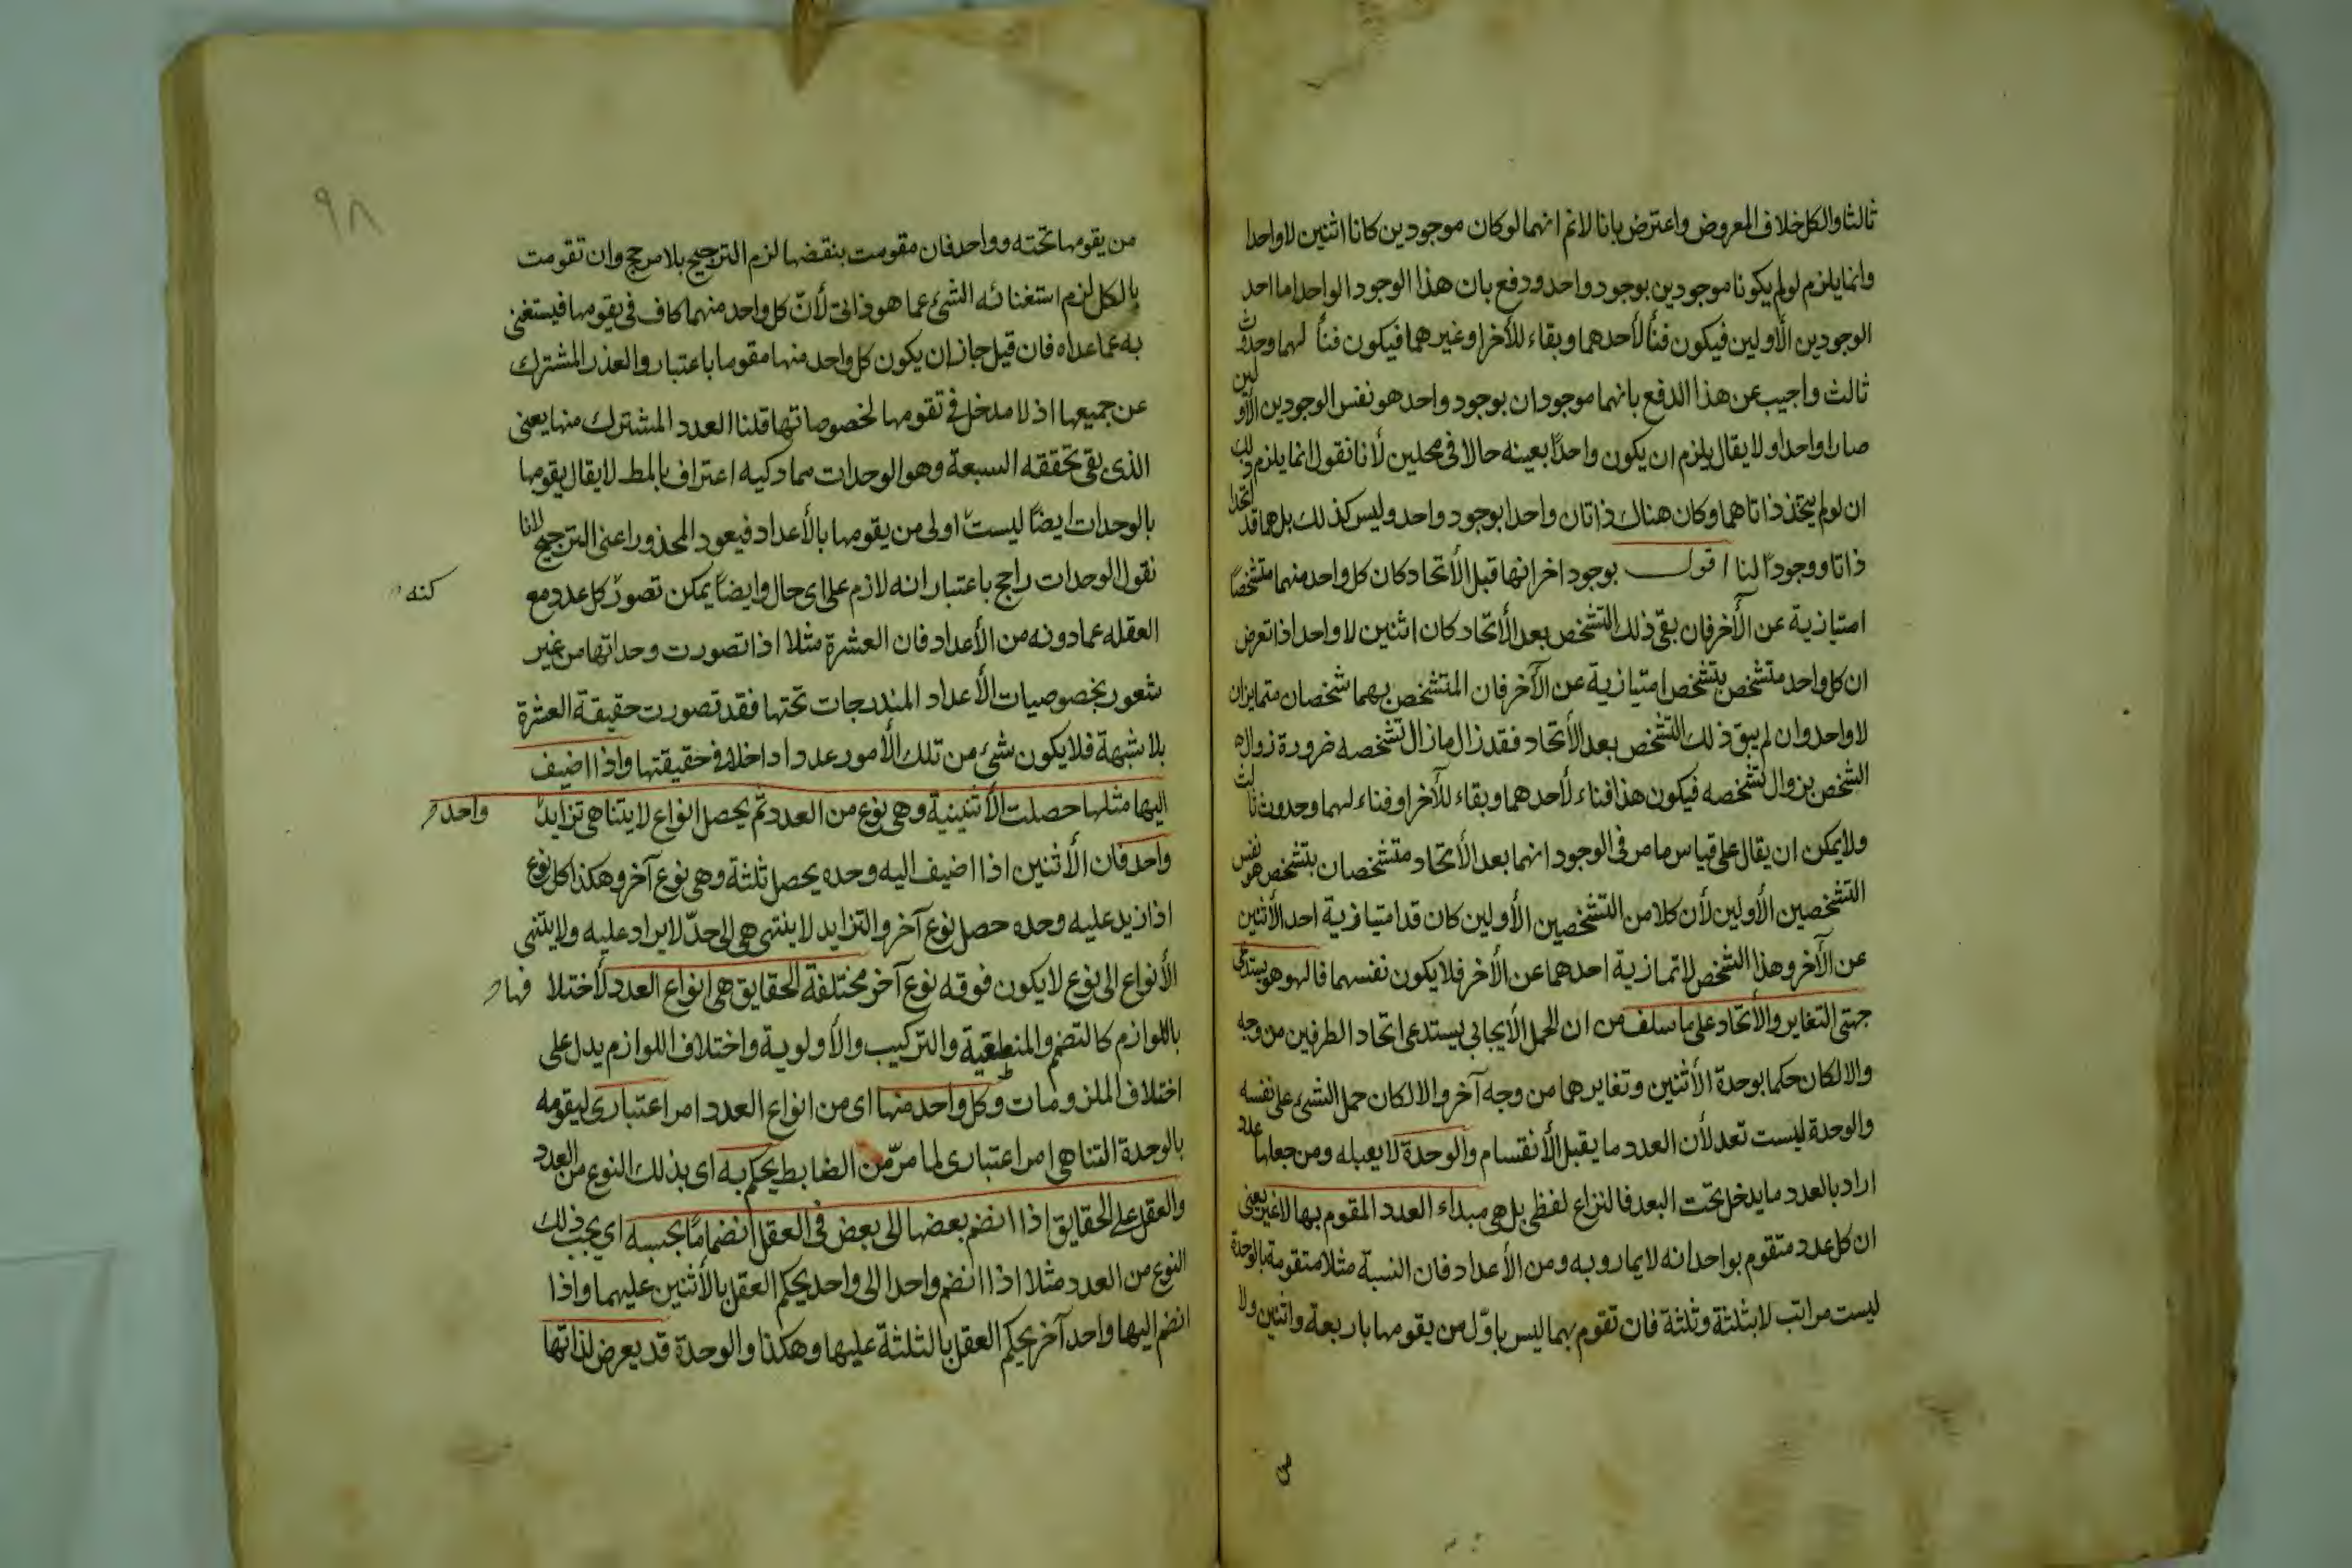 ثالثا والكل خلاف المعروض واعترض بانا لانم انهما لو كان موجودين كانا اثنين لا واحدا
وانما يلزم لو لم يكونا موجودين بوجود واحد ودفع بان هذا الوجود الواحد اما احد
الوجودين الأولين فيكون فنأ لأحدهما وبقاء للأخر او غيرهما فيكون فنأ لهما وحدوث
ثالث واجيب عن هذا الدفع بانهما موجودان بوجود واحد هو نفس الوجودين الأولين
صارا واحدا ولا يقال يلزم ان يكون واحدا بعينه حالا فى محلين لأنا نقول انما يلزم ذلك
ان لو لم يتخذ ذاتاهما وكان هناك ذاتان واحدا بوجود واحد وليس كذلك بل هما قد اتحدا
ذاتا ووجودا لنا اقول بوجود اخر انها قبل الأتحاد كان كل واحد منهما متشخصا
امتيازية عن الأخر فان بقى ذلك التشخص بعد الأتحاد كان اثنين لا واحد اذا تعرض
ان كل واحد متشخص بتشخص امتيازية عن الآخر فان المتشخص بهما شخصان متمايزان
لا واحد وان لم يبق ذلك التشخص بعد الأتحاد فقد زال ما زال تشخصه ضرورة زواله
الشخص بزوال تشخصه فيكون هذا فناء لأحدهما وبقاء للأخر او فناء لهما وحدوث ثالث
ولا يمكن ان يقال على قياس ما مر فى الوجود انهما بعد الأتحاد متشخصان بتشخص هو نفس
التشخصين الأولين لأن كلا من التشخصين الأولين كان قد امتيازية احد الأثنين
عن الآخر وهذا الشخص لا تمازية احدهما عن الأخر فلا يكون نفسهما فالهو هو يستدعى
جهتى التغاير والأتحاد على ما سلف من ان الحمل الأيجابى يستدعى اتحاد الطرفين من وجه
والا لكان حكما بوحدة الأثنين وتغايرهما من وجه آخر والا لكان حمل الشئ على نفسه
والوحدة ليست تعد لأن العدد ما يقبل الأنقسام والوحدة لا يعبله ومن جعلها عدد
اراد بالعدد ما يدخل تحت البعد فالنزاع لفظى بل هى مبداء العدد المقوم بها لا غير يعنى
ان كل عدد متقوم بواحداته لا يماروبه ومن الأعداد فان النسبة مثلا متقومة بالوحدة
ليست مراتب لا بثلثة وثلثة فان تقوم بهما ليس باول من يقومها باربعة واثنين ولا
من
٩٨
من يقومها تحته وواحد فان مقومت بنقضها لزم الترجيح بلا مرجح وان تقومت
بالكل لزم استغنائه الشئ عما هو ذاتى لأن كل واحد منهما كاف فى يقومها فيستغنى
به عما عداه فان قيل جاز ان يكون كل واحد منها مقوما باعتبار والعذر المشترك
عن جميعها اذ لا مدخل فى تقومها لخصوصاتها قلنا العدد المشترك منها يعنى
الذى بقى تحققه السبعة وهو الوحدات مما دكيه اعتراف بالمط لا يقال يقومها
بالوحدات ايضا ليست اولى من يقومها بالأعداد فيعود المحذور اعنى الترجيح لانا
نقول الوحدات راجح باعتبار انه لازم على اى حال وايضا يمكن تصور كل عدد مع كنه
العقله عما دونه من الأعداد فان العشرة مثلا اذا تصورت وحداتها من غير
شعور بخصوصيات الأعداد المندرجات تحتها فقد تصورت حقيقة العشرة
بلا شبهة فلا يكون شئ من تلك الأمور عددا داخلا فى حقيقتها واذا اضيف
اليها مثلها حصلت الأثنينية وهى نوع من العدد ثم يحصل انواع لا يتناهى تزايد واحد
واحد فان الأثنين اذا اضيف اليه وحده يحصل ثلثة وهى نوع آخر وهكذا كل نوع
اذا زيد عليه وحده حصل نوع آخر والتزايد لا ينتهى هى الى حد لا يراد عليه ولا ينتهى
الأنواع الى نوع لا يكون فوقه نوع آخر مختلفة الحقايق هى انواع العدد لأختلا فها
باللوازم كالتضم والمنطقية والتركيب والأولوية واختلاف اللوازم يدل على
اختلاف الملزومات وكل واحد منها اى من انواع العدد امر اعتبارى ليقومه
بالوحدة التنا هى امر اعتبارى لما مر من الضابط يحكم به اى بذلك النوع من العدد
والعقل على الحقايق اذا انضم بعضها الى بعض فى العقل انضماما بحسبه اى بحب ذلك
النوع من العدد مثلا اذا انضم واحدا الى واحد يحكم العقل بالأثنين عليهما واذا
انضم اليها واحد آخر يحكم العقل بالثلثة عليها وهكذا والوحدة قد يعرض لذاتها